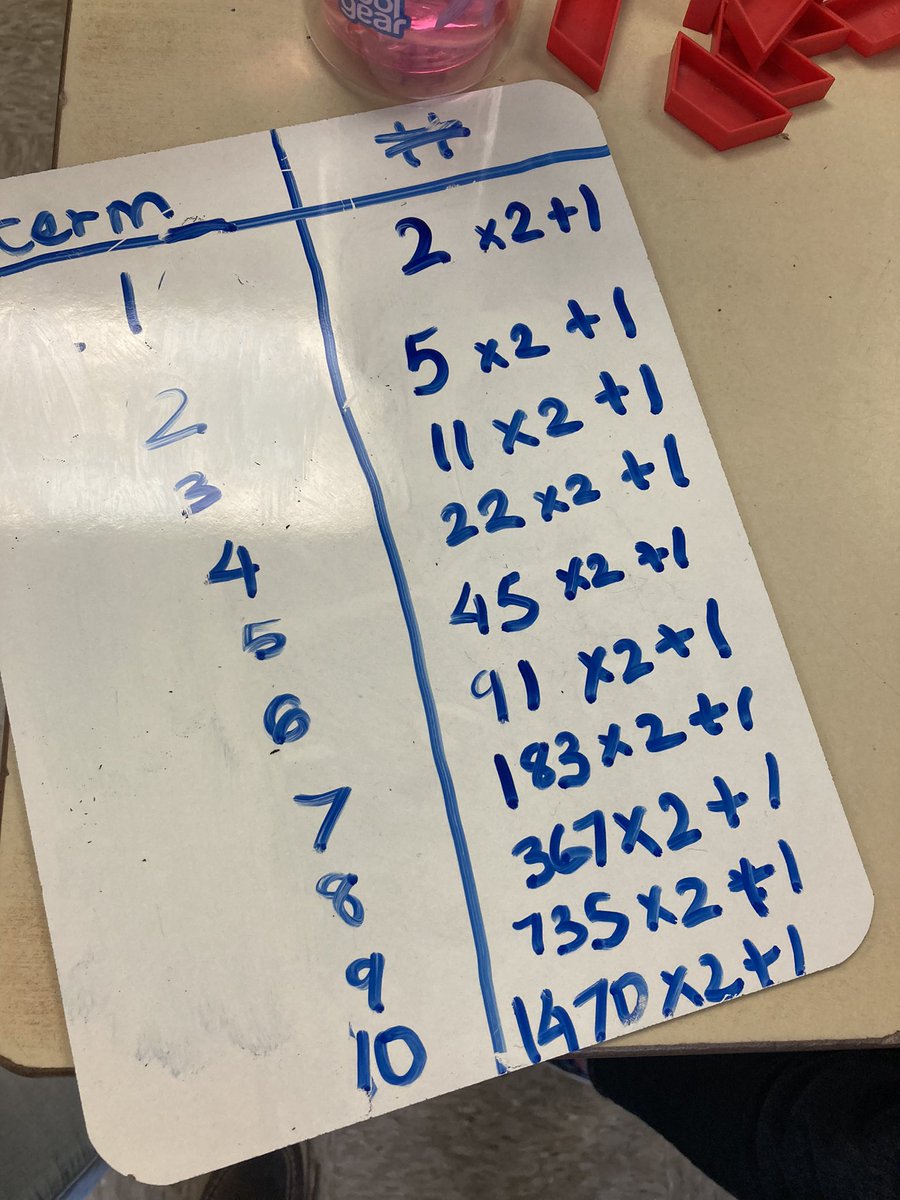 ool
gear
term #
1 2 x2+1
2 5 x2+1
3 11 x2+1
4 22 x2+1
5 45 x2+1
6 91 x2+1
7 183x2+1
8 367x2+1
9 735x2+1
10 1470x2+1